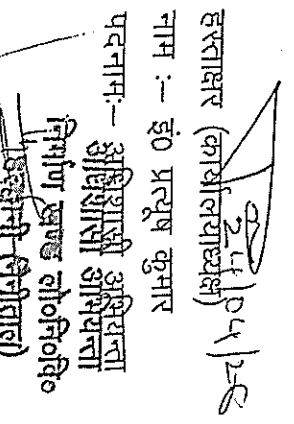 हस्ताक्षर (कार्यालयाध्यक्ष)
नाम :- इं० प्रत्यूष कुमार
पदनाम:- अधिशासी अभियन्ता
अधिशासी अभियन्ता
निर्माण खण्ड लो०नि०वि०
हल्द्वानी (नैनीताल)